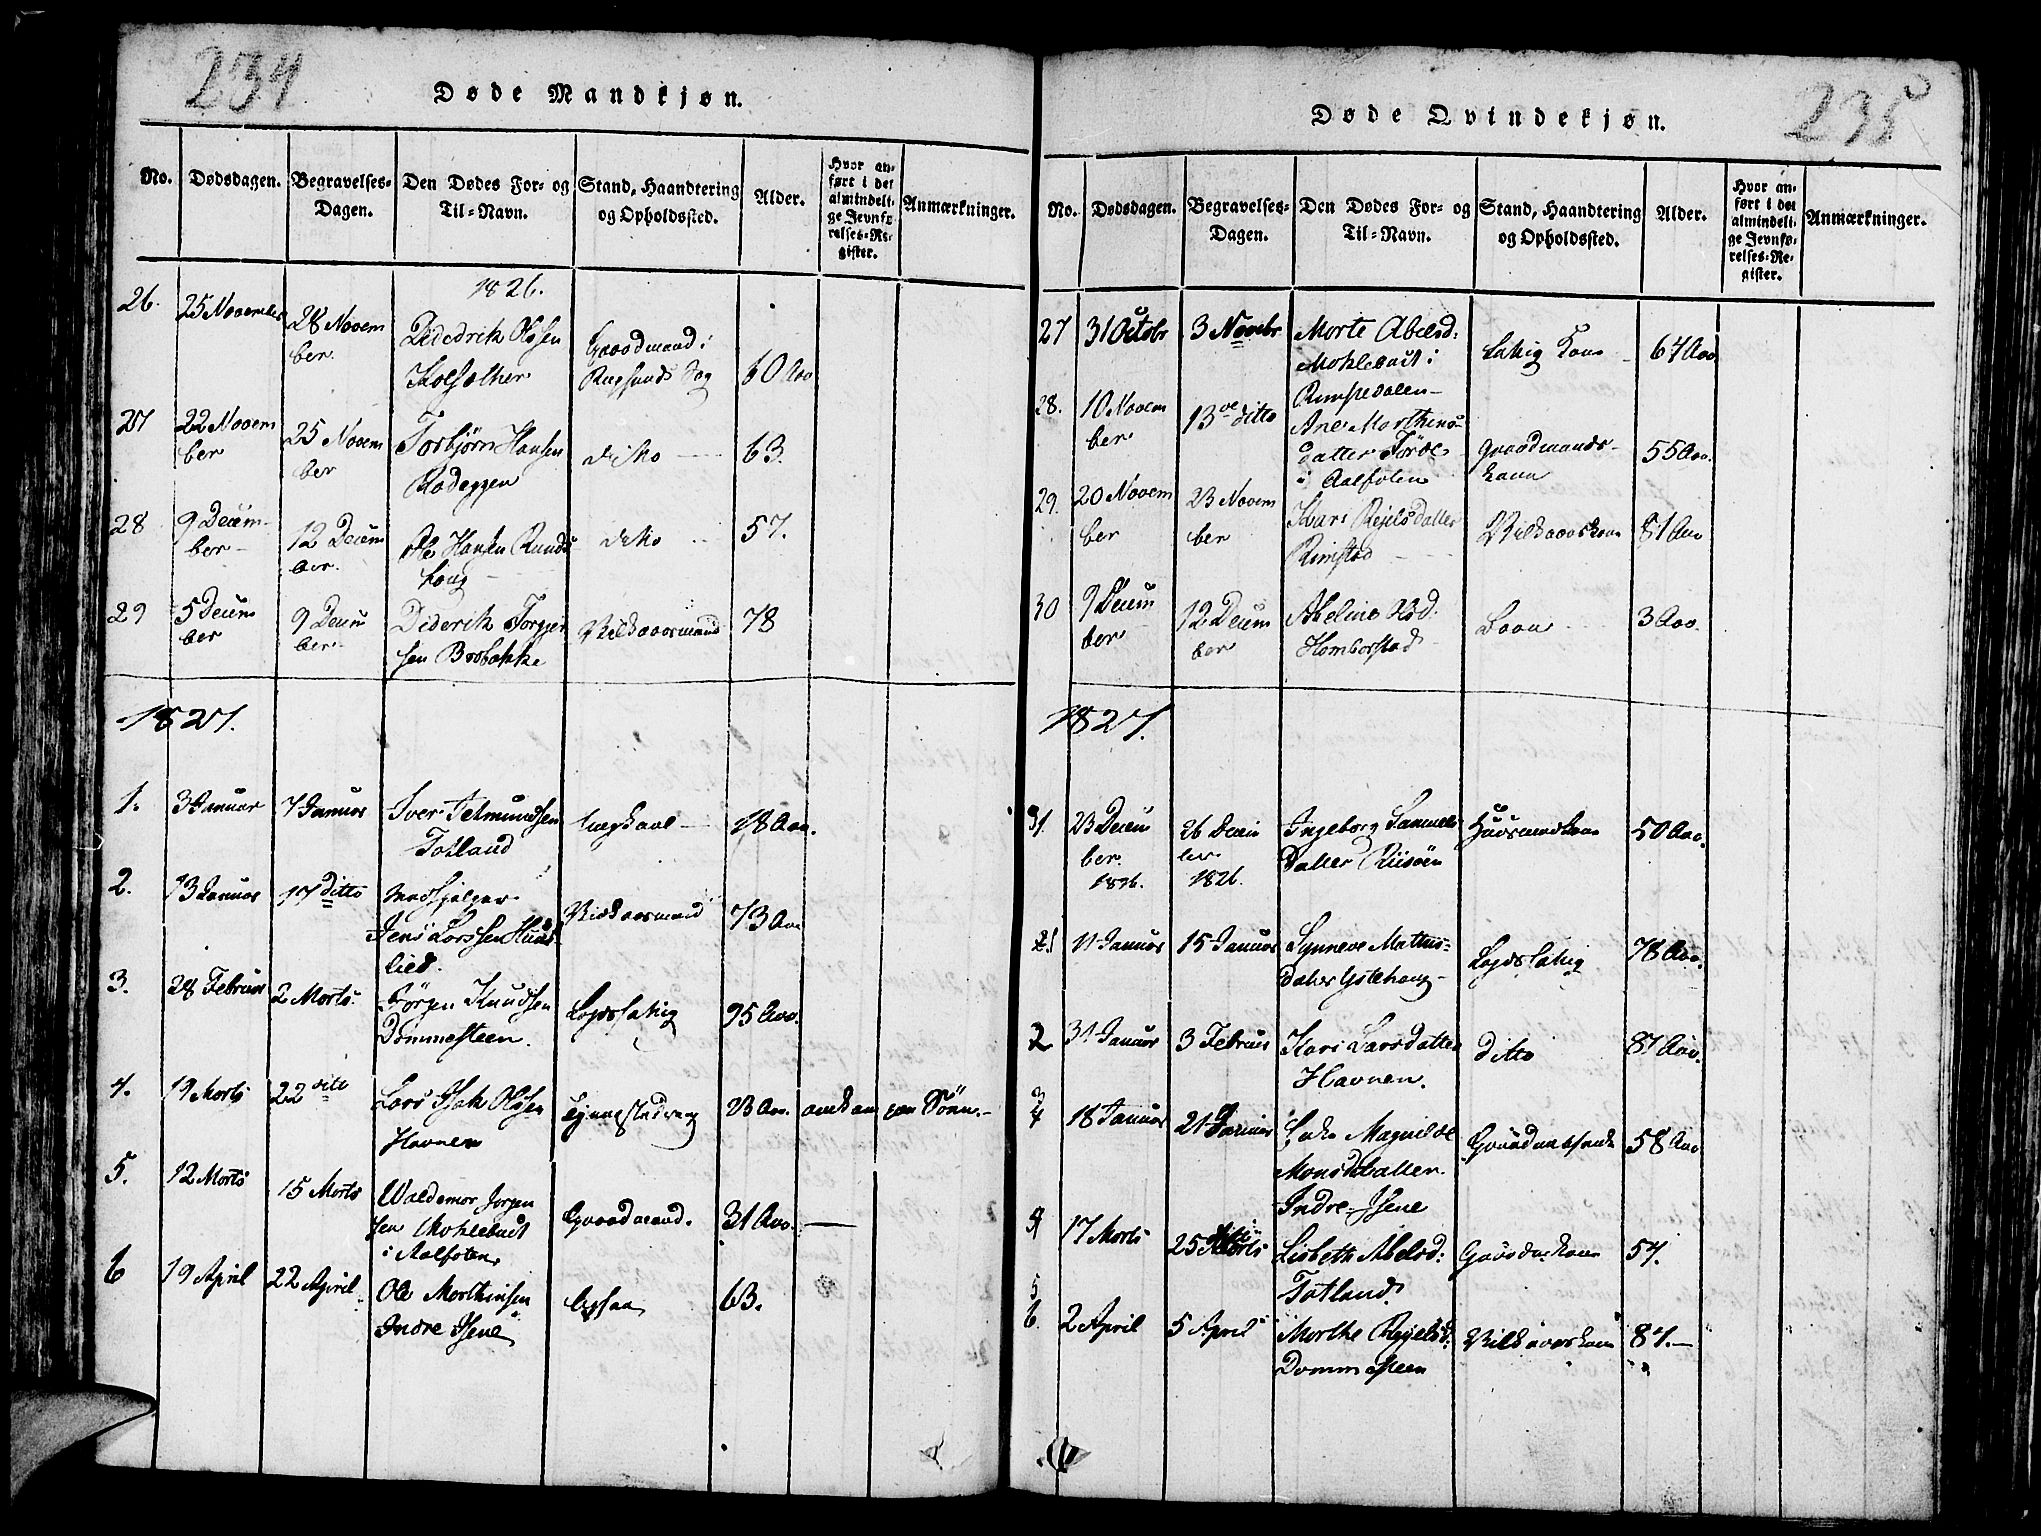 234
Døde Mandkjøn.
No. Dødsdagen. Begravelses-Dagen. Den Dødes For- og Til-Navn. Stand, Haandtering og Opholdssted. Alder. Hvor anført i det almindelige Jevnførelses-Register. Anmærkninger.
1826.
26. 25 November 28 November Didedrik Olssen Gaardmand i 60 Aar
27 22 November 25 November Torbjørn Hansen ditto 63.
28 9 December 12 December Ole Hansen ditto 57.
29 5 December 9 December Diderik Torgersen Brobakke Vilkaarsmand 78
1827.
1. 3 Januar 7 Januar Iver Totland 18 Aar.
2. 13 Januar 17 ditto Medhjelper Jens Larssen Vilkaarsmand 73 Aar
3. 28 Februar 2 Marts Jørgen Knudsen Dommesteen. Lægdslahig 95 Aar.
4. 19 Marts 22 dito Lars Isak Olssen Havnen 23 Aar. omkom paa Søen.
5. 12 Marts 15 Marts Waldemar Jørgensen Myklebust i Aalfoten Gaardmand. 31 Aar.
6 19 April 22 April Ole Morthinsen Indre Isene 63.
235
Døde Qvindekjøn.
No. Dødsdagen. Begravelses-Dagen. Den Dødes For- og Til-Navn. Stand, Haandtering og Opholdssted. Alder. Hvor anført i det almindelige Jevnførelses-Register. Anmærkninger.
27 31 Octobr 3 Novembr Marte Abelsd: i Rimstedalen 64 Aar
28. 10 November 13de ditto Ane Morthinsdatter Førde i Aalfoten Gaardmandskone 55 Aar.
29. 20 November 23 November Kari Rejelsdatter Rimstad Vilkaarskone 81 Aar
30 9 December 12 December Abeline Olsd: Hamborstad Barn 3 Aar.
1827.
31. 23 December. 1826. 26 December 1826. Ingeborg Samuelsdatter Riisøen Huusmandskone 50 Aar.
1 11 Januar 15 Januar Synneve Mathiasdatter Ystehaug 78 Aar.
2 31 Januar 3 Februar Kari Larsdatter Havnen. ditto 81 Aar.
3 4 18 Januar 21 Januar Magnilde Monsdatter Indre Isene 58 Aar
4 17 Marts 25 Marts Lisbeth Abelsd: Totland 57.
5 6. 2 April 5 April Marthe Rejelsd: Dommesteen Vilkaarskone 87.